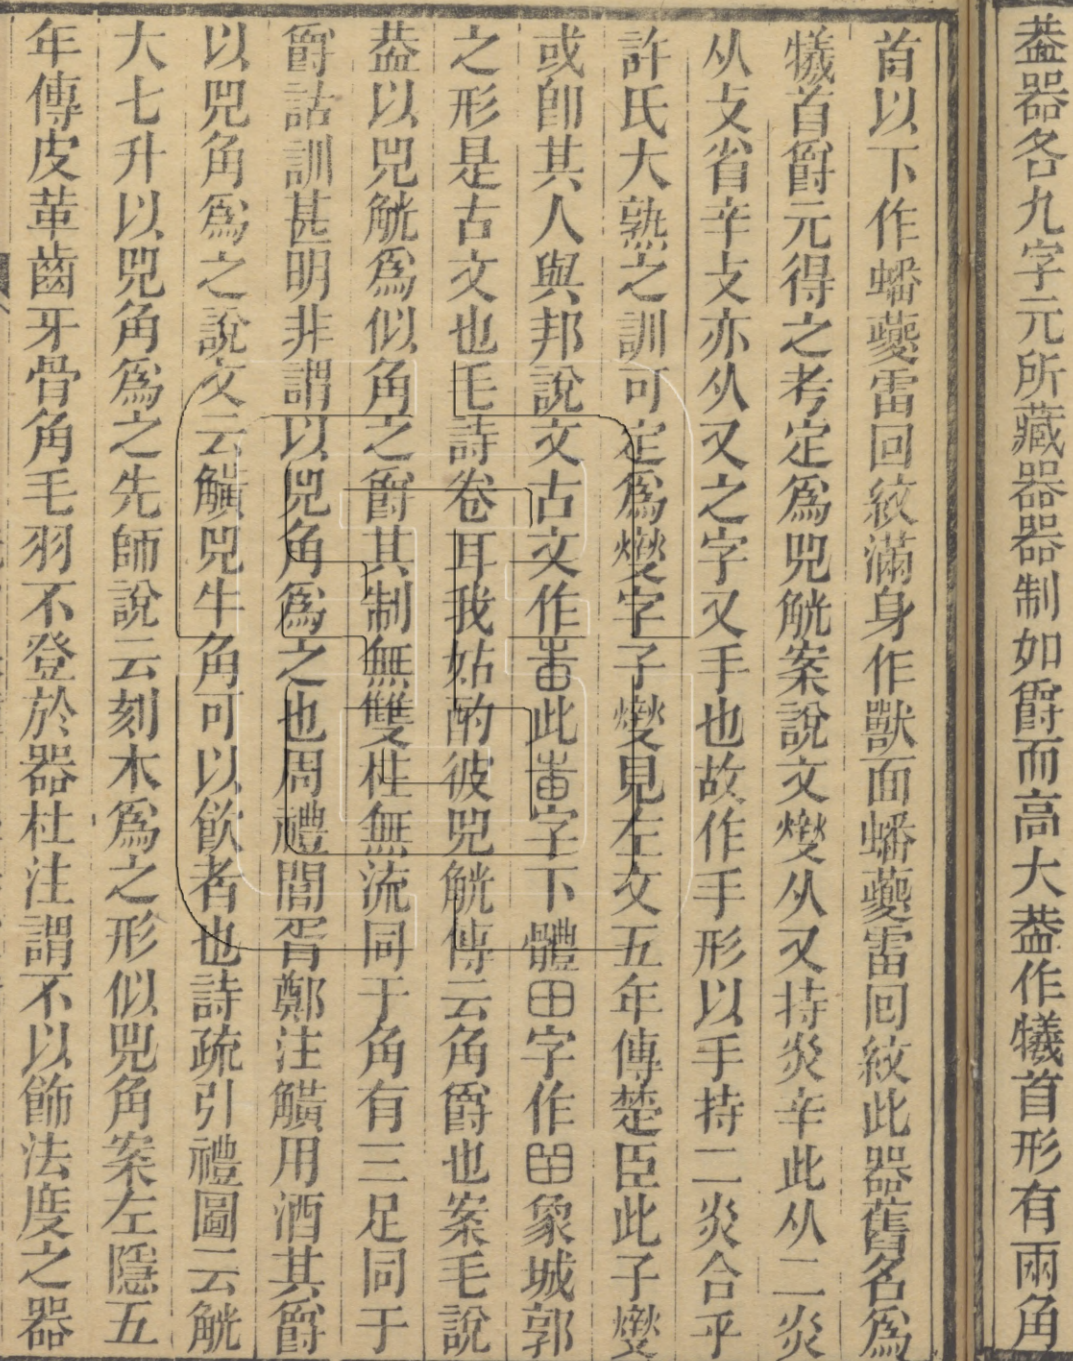 葢器各九字元所藏器器制如爵而高大葢作犧首形有兩角
首以下作蟠夔雷回紋滿身作獸面蟠夔雷回紋此器舊名爲
犧首爵元得之考定爲兕觥案說文燮从又持炎辛此从二炎
从攴省辛攴亦从又之字又手也故作手形以手持二炎合乎
許氏大熟之訓可定爲燮字子燮見左文五年傳楚臣此子燮
或卽其人與邦說文古文作𤰫此𤰫字下體田字作𤰔象城郭
之形是古文也毛詩卷耳我姑酌彼兕觥傳云角爵也案毛說
葢以兕觥爲似角之爵其制無雙柱無流同于角有三足同于
爵詁訓甚明非謂以兕角爲之也周禮閭胥鄭注觵用酒其爵
以兕角爲之說文云觵兕牛角可以飮者也詩疏引禮圖云觥
大七升以兕角爲之先師說云刻木爲之形似兕角案左隱五
年傳皮革齒牙骨角毛羽不登於器杜注謂不以飾法度之器